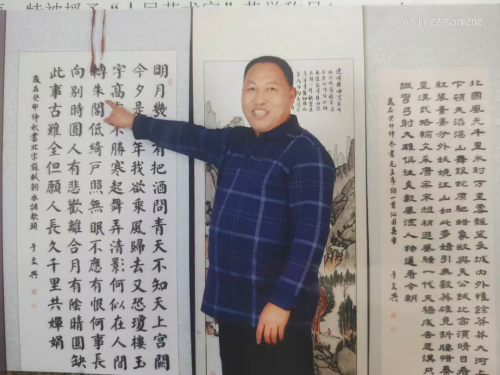 特被授予“人民艺术家”荣誉称号
2024/05/22 11:29
北國風光千里冰封萬里雪飄望長城內外惟餘莽莽大河上
下頓失滔滔山舞銀蛇原馳蠟象欲與天公試比高須晴日看
紅裝素裹分外妖嬈江山如此多嬌引無數英雄競折腰惜秦
皇漢武略輸文采唐宗宋祖稍遜風騷一代天驕成吉思漢只
識彎弓射大雕俱往矣數風流人物還看今朝
歲在癸卯仲冬書毛主席詞一首沁園春雪
于文興
明月幾有把酒問青天不知天上宮闕
今夕是年我欲乘風歸去又恐瓊樓玉
宇高不勝寒起舞弄清影何似在人間
轉朱閣低綺戶照無眠不應有恨何事長
向別時圓人有悲歡離合月有陰晴圓缺
此事古難全但願人長久千里共嬋娟
歲在癸卯仲秋書北宋蘇軾詞水調歌頭
于文興